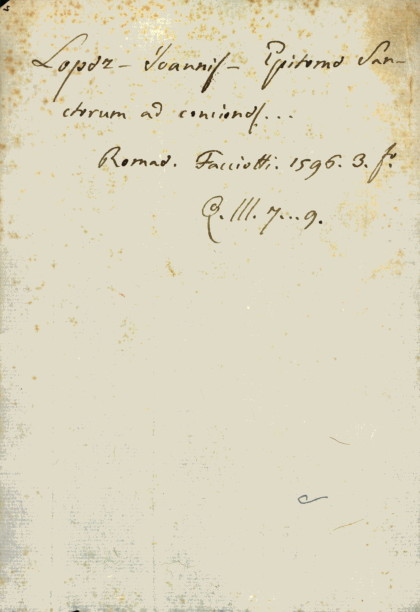 Lopez - Joannis - Epitome San-
ctorum ad conciones...
Romae. Facciotti. 1596. 3. fo
Q. III. 7...9.